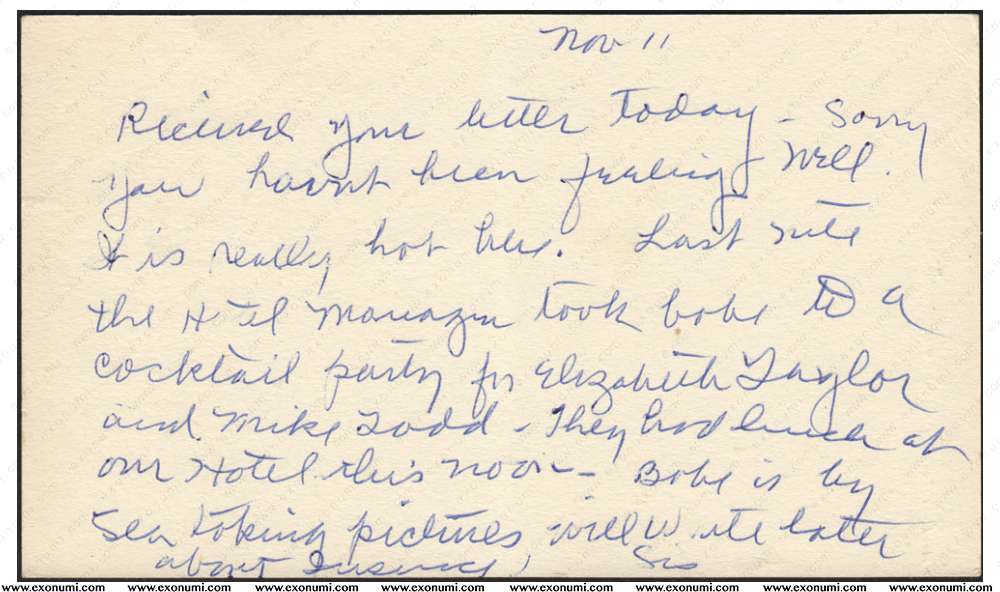 Nov 11
Received your letter today - Sorry
you havnt been feeling well.
It is really hot here. Last nite
the Hotel Manager took babe to a
cocktail party for Elizabeth Taylor
and Mike Todd - They had lunch at
our Hotel this noon - Babe is by
Sea taking pictures, will write later
about Sis
www.exonumi.com www.exonumi.com www.exonumi.com www.exonumi.com www.exonumi.com www.exonumi.com www.exonumi.com